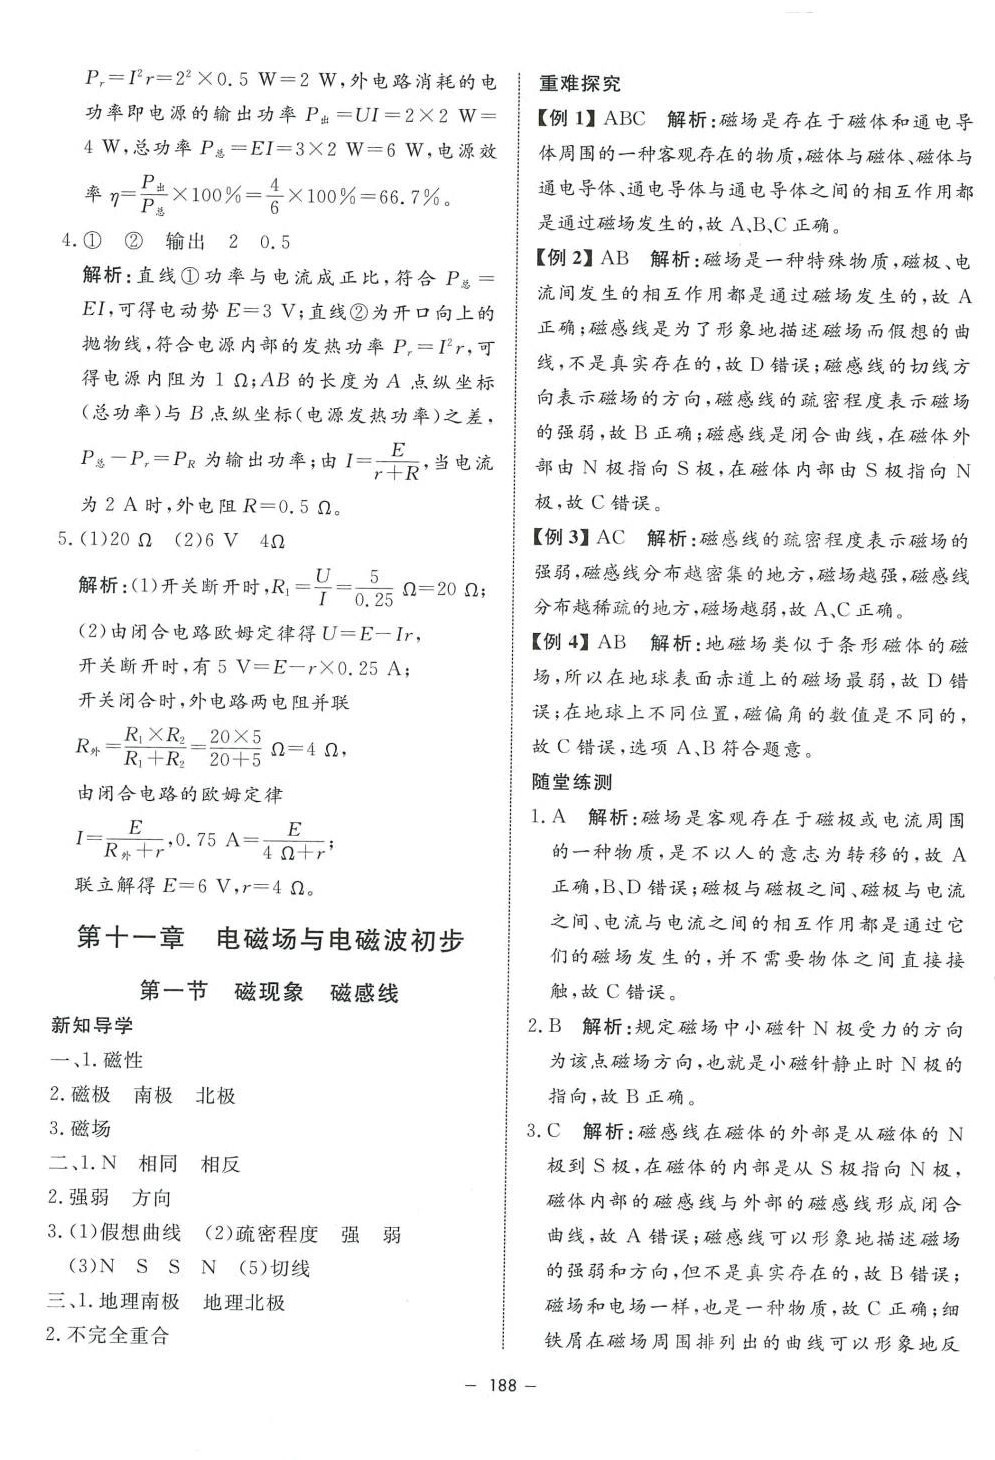 P_r=I²r=2²×0.5 W=2 W,外电路消耗的电
功率即电源的输出功率 P出=UI=2×2 W=
4 W,总功率 P总=EI=3×2 W=6 W,电源效
率 η=P出/P总×100%=4/6×100%=66.7%。
4.① ② 输出 2 0.5
解析:直线①功率与电流成正比,符合 P总=
EI,可得电动势 E=3 V;直线②为开口向上的
抛物线,符合电源内部的发热功率 P_r=I²r,可
得电源内阻为 1 Ω;AB 的长度为 A 点纵坐标
(总功率)与 B 点纵坐标(电源发热功率)之差,
P总-P_r=P_R 为输出功率;由 I=E/(r+R),当电流
为 2 A 时,外电阻 R=0.5 Ω。
5.(1)20 Ω (2)6 V 4Ω
解析:(1)开关断开时,R₁=U/I=5/0.25 Ω=20 Ω;
(2)由闭合电路欧姆定律得 U=E-Ir,
开关断开时,有 5 V=E-r×0.25 A;
开关闭合时,外电路两电阻并联
R外=(R₁×R₂)/(R₁+R₂)=(20×5)/(20+5) Ω=4 Ω,
由闭合电路的欧姆定律
I=E/(R外+r),0.75 A=E/(4 Ω+r);
联立解得 E=6 V,r=4 Ω。
第十一章 电磁场与电磁波初步
第一节 磁现象 磁感线
新知导学
一、1.磁性
2.磁极 南极 北极
3.磁场
二、1.N 相同 相反
2.强弱 方向
3.(1)假想曲线 (2)疏密程度 强 弱
(3)N S S N (5)切线
三、1.地理南极 地理北极
2.不完全重合
重难探究
【例 1】ABC 解析:磁场是存在于磁体和通电导
体周围的一种客观存在的物质,磁体与磁体、磁体与
通电导体、通电导体与通电导体之间的相互作用都
是通过磁场发生的,故 A、B、C 正确。
【例 2】AB 解析:磁场是一种特殊物质,磁极、电
流间发生的相互作用都是通过磁场发生的,故 A
正确;磁感线是为了形象地描述磁场而假想的曲
线,不是真实存在的,故 D 错误;磁感线的切线方
向表示磁场的方向,磁感线的疏密程度表示磁场
的强弱,故 B 正确;磁感线是闭合曲线,在磁体外
部由 N 极指向 S 极,在磁体内部由 S 极指向 N
极,故 C 错误。
【例 3】AC 解析:磁感线的疏密程度表示磁场的
强弱,磁感线分布越密集的地方,磁场越强,磁感线
分布越稀疏的地方,磁场越弱,故 A、C 正确。
【例 4】AB 解析:地磁场类似于条形磁体的磁
场,所以在地球表面赤道上的磁场最弱,故 D 错
误;在地球上不同位置,磁偏角的数值是不同的,
故 C 错误,选项 A、B 符合题意。
随堂练测
1.A 解析:磁场是客观存在于磁极或电流周围
的一种物质,是不以人的意志为转移的,故 A
正确,B、D 错误;磁极与磁极之间、磁极与电流
之间、电流与电流之间的相互作用都是通过它
们的磁场发生的,并不需要物体之间直接接
触,故 C 错误。
2.B 解析:规定磁场中小磁针 N 极受力的方向
为该点磁场方向,也就是小磁针静止时 N 极的
指向,故 B 正确。
3.C 解析:磁感线在磁体的外部是从磁体的 N
极到 S 极,在磁体的内部是从 S 极指向 N 极,
磁体内部的磁感线与外部的磁感线形成闭合
曲线,故 A 错误;磁感线可以形象地描述磁场
的强弱和方向,但不是真实存在的,故 B 错误;
磁场和电场一样,也是一种物质,故 C 正确;细
铁屑在磁场周围排列出的曲线可以形象地反
- 188 -